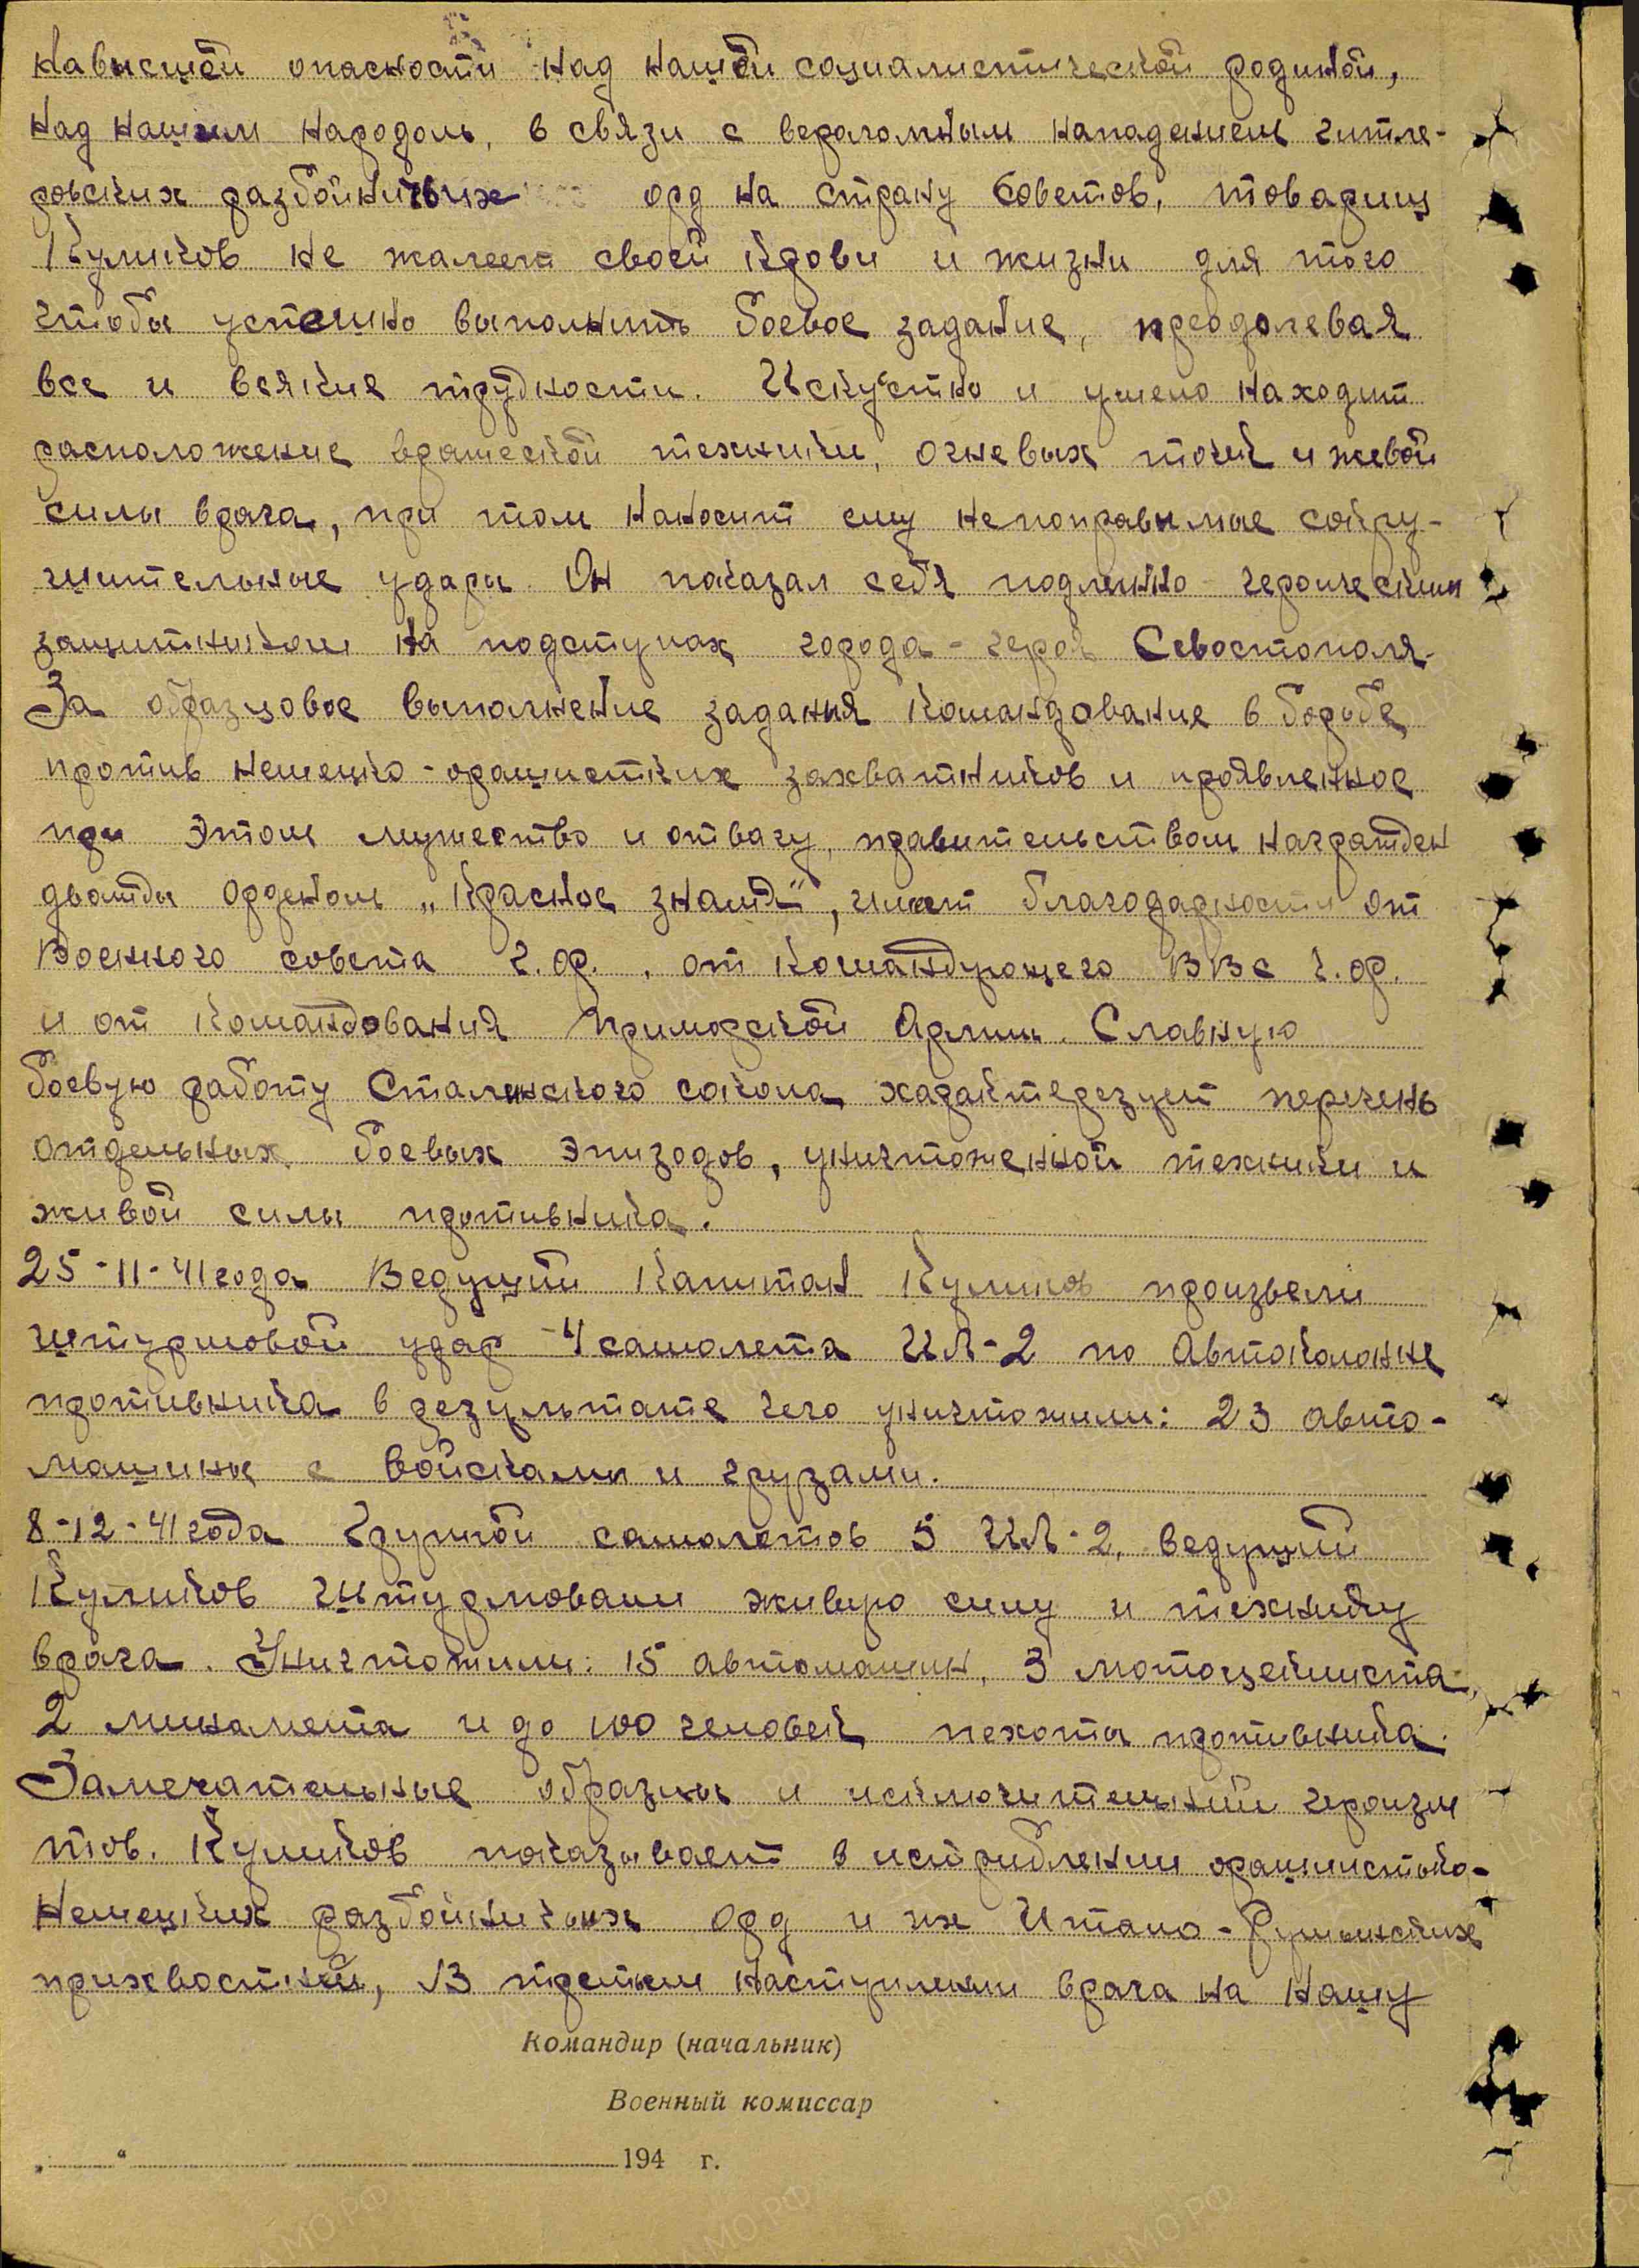 нависшей опасности над нашей социалистической родиной,
над нашим народом, в связи с вераломным нападением гитле-
ровских разбойничьих орд на страну Советов, товарищ
Куликов не жалеет своей крови и жизни для того
чтобы успешно выполнить боевое задание, преодолевая
все и всякие трудности. Искустно и умело находит
расположение вражеской техники, огневых точек и живой
силы врага, при том наносит ему непоправимые сокру-
шительные удары. Он показал себя подлинно героическим
защитником на подступах города-героя Севостополя.
За образцовое выполнение задания командование в борьбе
против немецко-фашистких захватчиков и проявленное
при этом мужество и отвагу, правительством награжден
дважды орденом „Красное знамя“, имеет благодарности от
Военного совета ч.ф., от Командующего ВВС ч.ф.
и от командования приморской Армии. Славную
боевую работу Сталинского сокола, характерезует перечень
отдельных боевых эпизодов, уничтоженной техники и
живой силы противника.
25-11-41 года Ведущий Капитан Куликов произвели
штурмовой удар 4 самолета ИЛ-2 по Автоколонне
противника в результате чего уничтожили: 23 авто-
машины с войсками и грузами.
8-12-41 года Группой самолетов 5 ИЛ-2, ведущий
Куликов штурмовали живую силу и технику
врага. Уничтожили: 15 автомашин, 3 мотоцеклиста,
2 миномета и до 100 человек пехоты противника.
Замечательные образцы и исключительный героизм
тов. Куликов показывает в истриблении фашистько-
Немецких разбойничьих орд и их Итало-Румынских
прихвостней, В третьем наступлении врага на нашу
Командир (начальник)
Военный комиссар
„ “ 194 г.